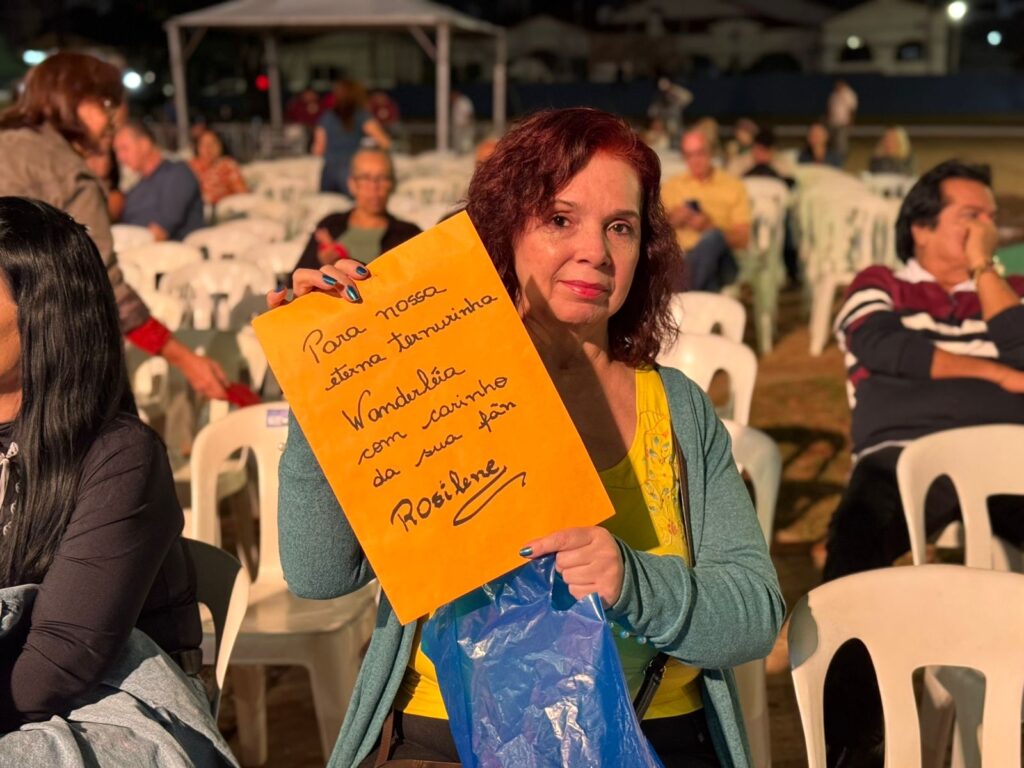 Para nossa
eterna ternurinha
Wanderléia
com carinho
da sua fãn
Rosilene